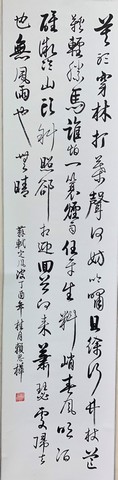 莫聽穿林打葉聲何妨吟嘯且徐行竹杖芒
鞋輕勝馬誰怕一蓑煙雨任平生料峭春風吹酒
醒微冷山頭斜照卻相迎回首向來蕭瑟處歸去
也無風雨也無晴
蘇軾定風波丁酉年桂月賴